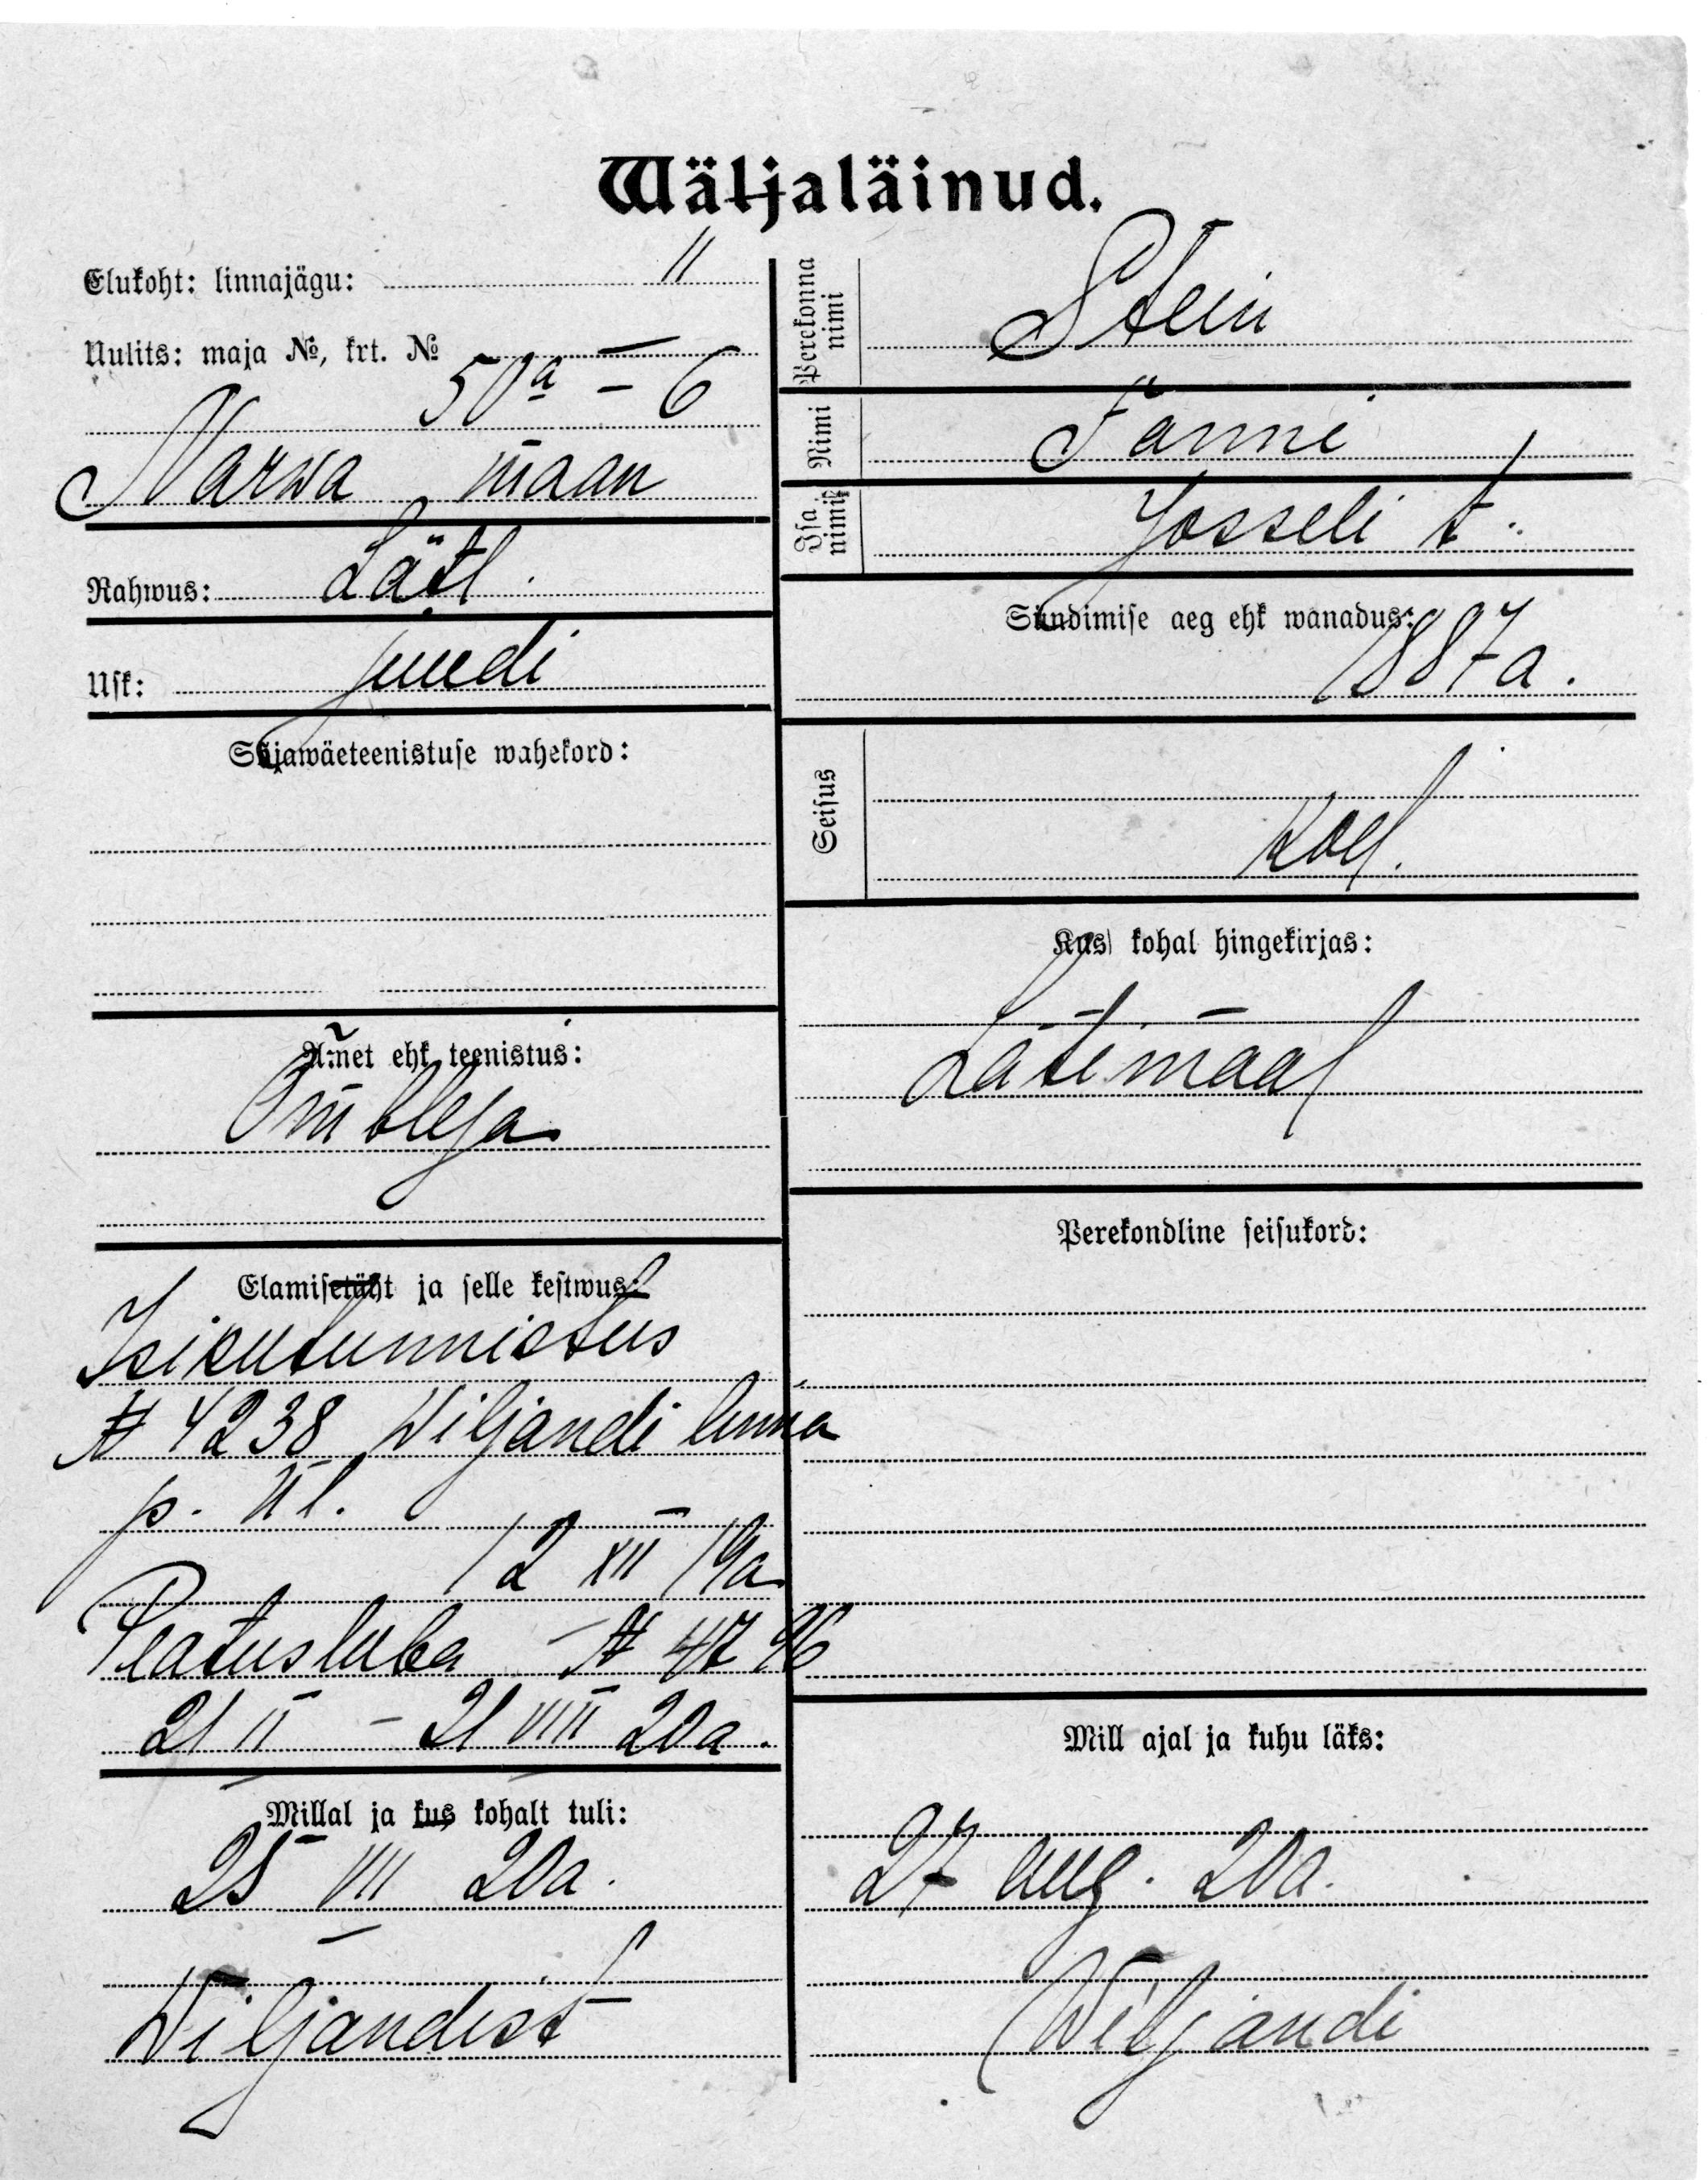 Wäljaläinud.
Elukoht: linnajägu: II
Uulits: maja №, krt. №
50a – 6
Narwa maan
Rahwus: Lätl.
Usk: juudi
Sõjawäeteenistuse wahekord:
Amet ehk teenistus:
Õmbleja
Elamisetäht ja selle kestwus:
Isikutunnistus
№ 4238 Wiljandi linna
p. ül.
12 XII 19a
Peatusluba – № 4796
21 II – 21 VIII 20a.
Millal ja kus kohalt tuli:
25 VIII 20a.
Wiljandist
Perekonna nimi Stein
Nimi Fanni
Isa nimi Josseli t.
Sündimise aeg ehk wanadus:
1887 a.
Seisus
Kus kohal hingekirjas:
Lätimaal
Perekondline seisukord:
Mill ajal ja kuhu läks:
27 aug. 20a.
Wiljandi